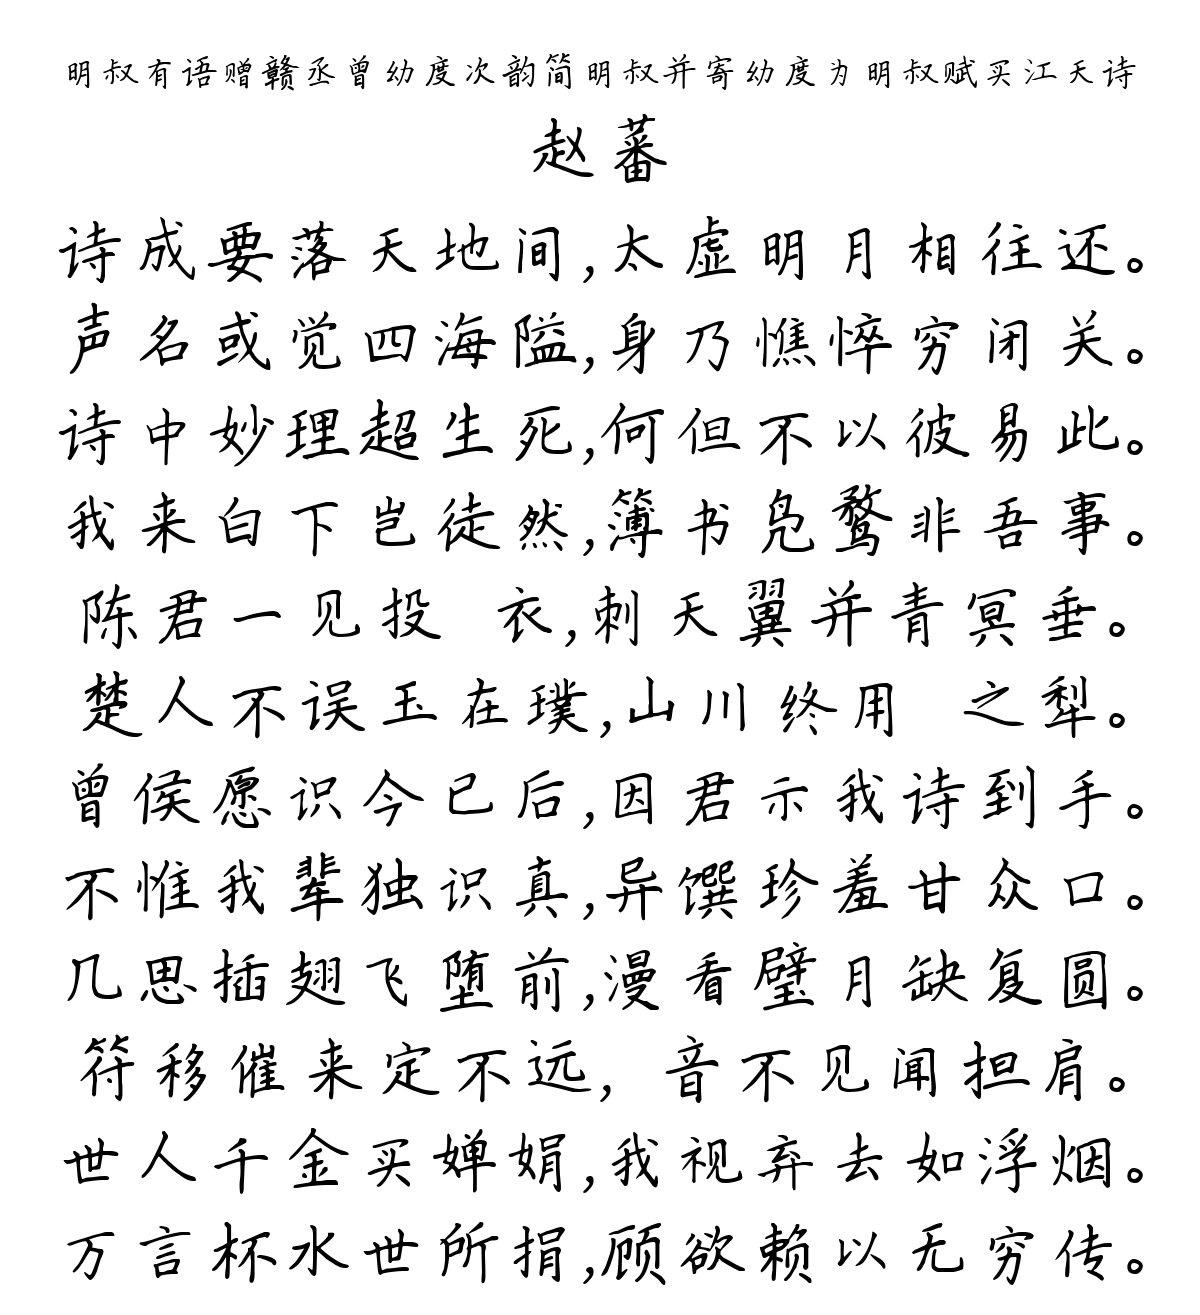 明叔有语赠赣丞曾幼度次韵简明叔并寄幼度为明叔赋买江天诗
赵蕃
诗成要落天地间,太虚明月相往还。
声名或觉四海隘,身乃憔悴穷闭关。
诗中妙理超生死,何但不以彼易此。
我来白下岂徒然,簿书凫鹜非吾事。
陈君一见投 衣,刺天翼并青冥垂。
楚人不误玉在璞,山川终用 之犁。
曾侯愿识今已后,因君示我诗到手。
不惟我辈独识真,异馔珍羞甘众口。
几思插翅飞堕前,漫看璧月缺复圆。
符移催来定不远, 音不见闻担肩。
世人千金买婵娟,我视弃去如浮烟。
万言杯水世所捐,顾欲赖以无穷传。